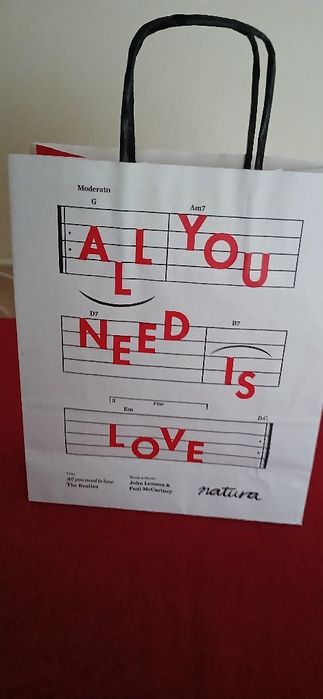 Moderato
G Am7
ALL YOU
D7 B7
NEED IS
3 Fine
Em D.C.
LOVE
Title
All you need is love
The Beatles
Words & Music
John Lennon &
Paul McCartney
natura